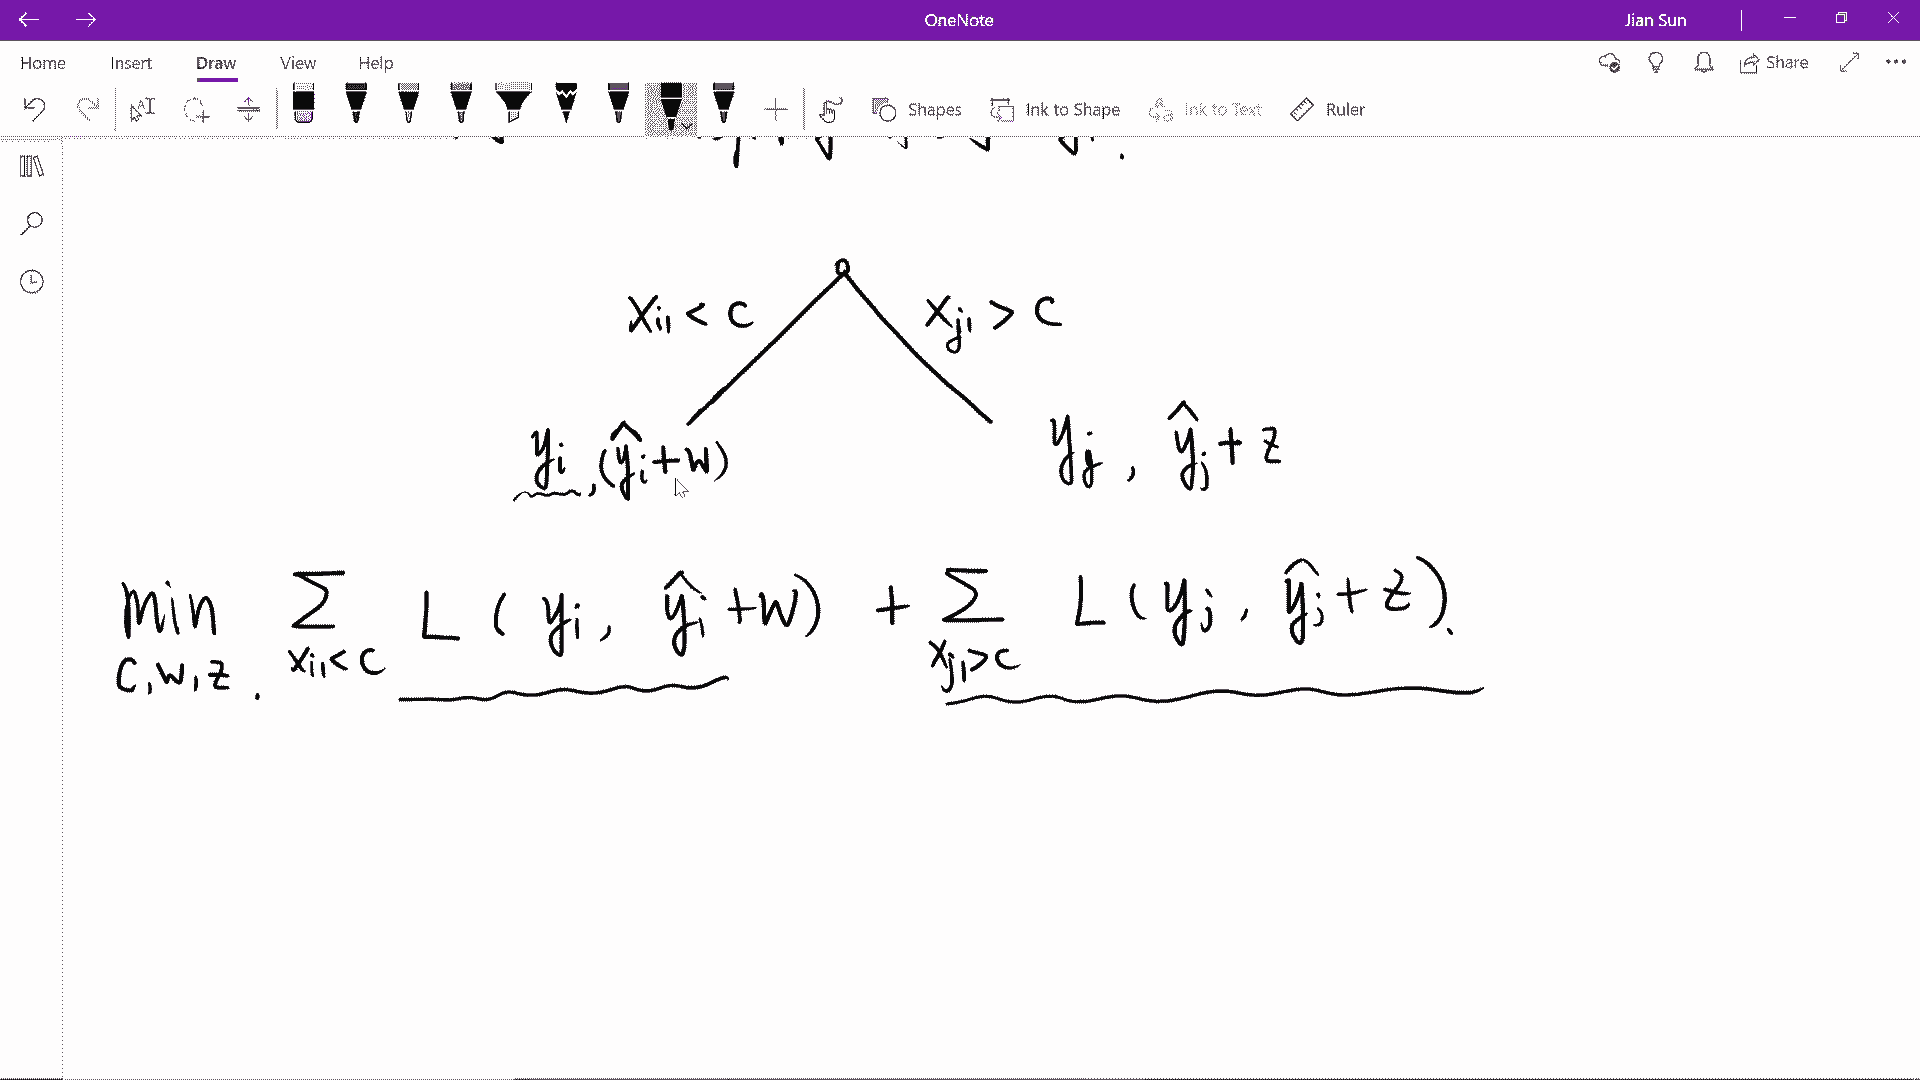 OneNote
Jian Sun
Home Insert Draw View Help
Share
Shapes Ink to Shape Ink to Text Ruler
x_{i1} < c
x_{j1} > c
y_i, (ŷ_i + w)
y_j, ŷ_j + z
min_{c, w, z}. ∑_{x_{i1} < c} L(y_i, ŷ_i + w) + ∑_{x_{j1} > c} L(y_j, ŷ_j + z).